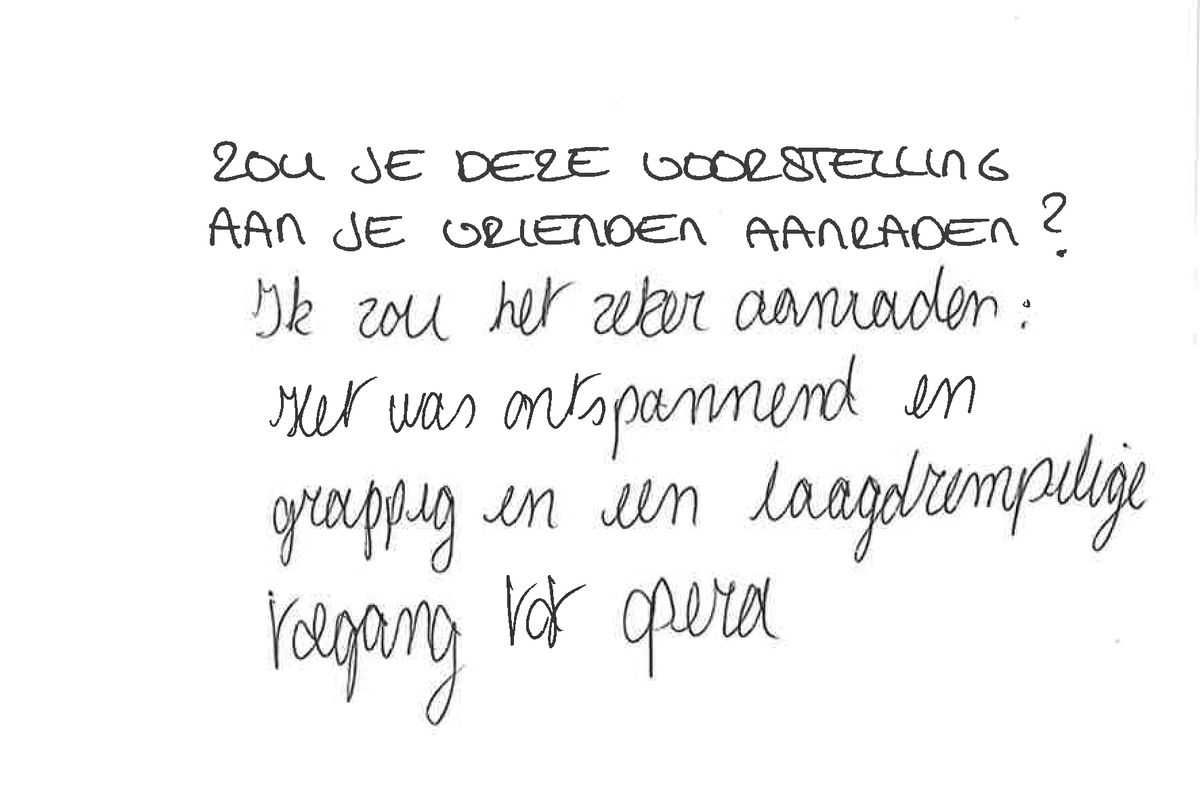 ZOU JE DEZE VOORSTELLING
AAN JE VRIENDEN AANRADEN?
Ik zou het zeker aanraden:
Het was ontspannend en
grappig en een laagdrempelige
toegang tot opera